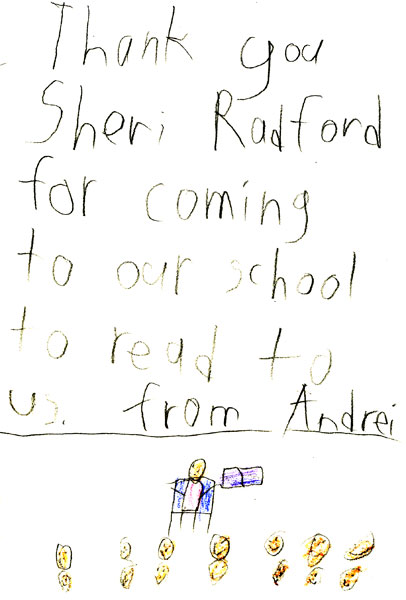 Thank you
Sheri Radford
for coming
to our school
to read to
us. from Andrei